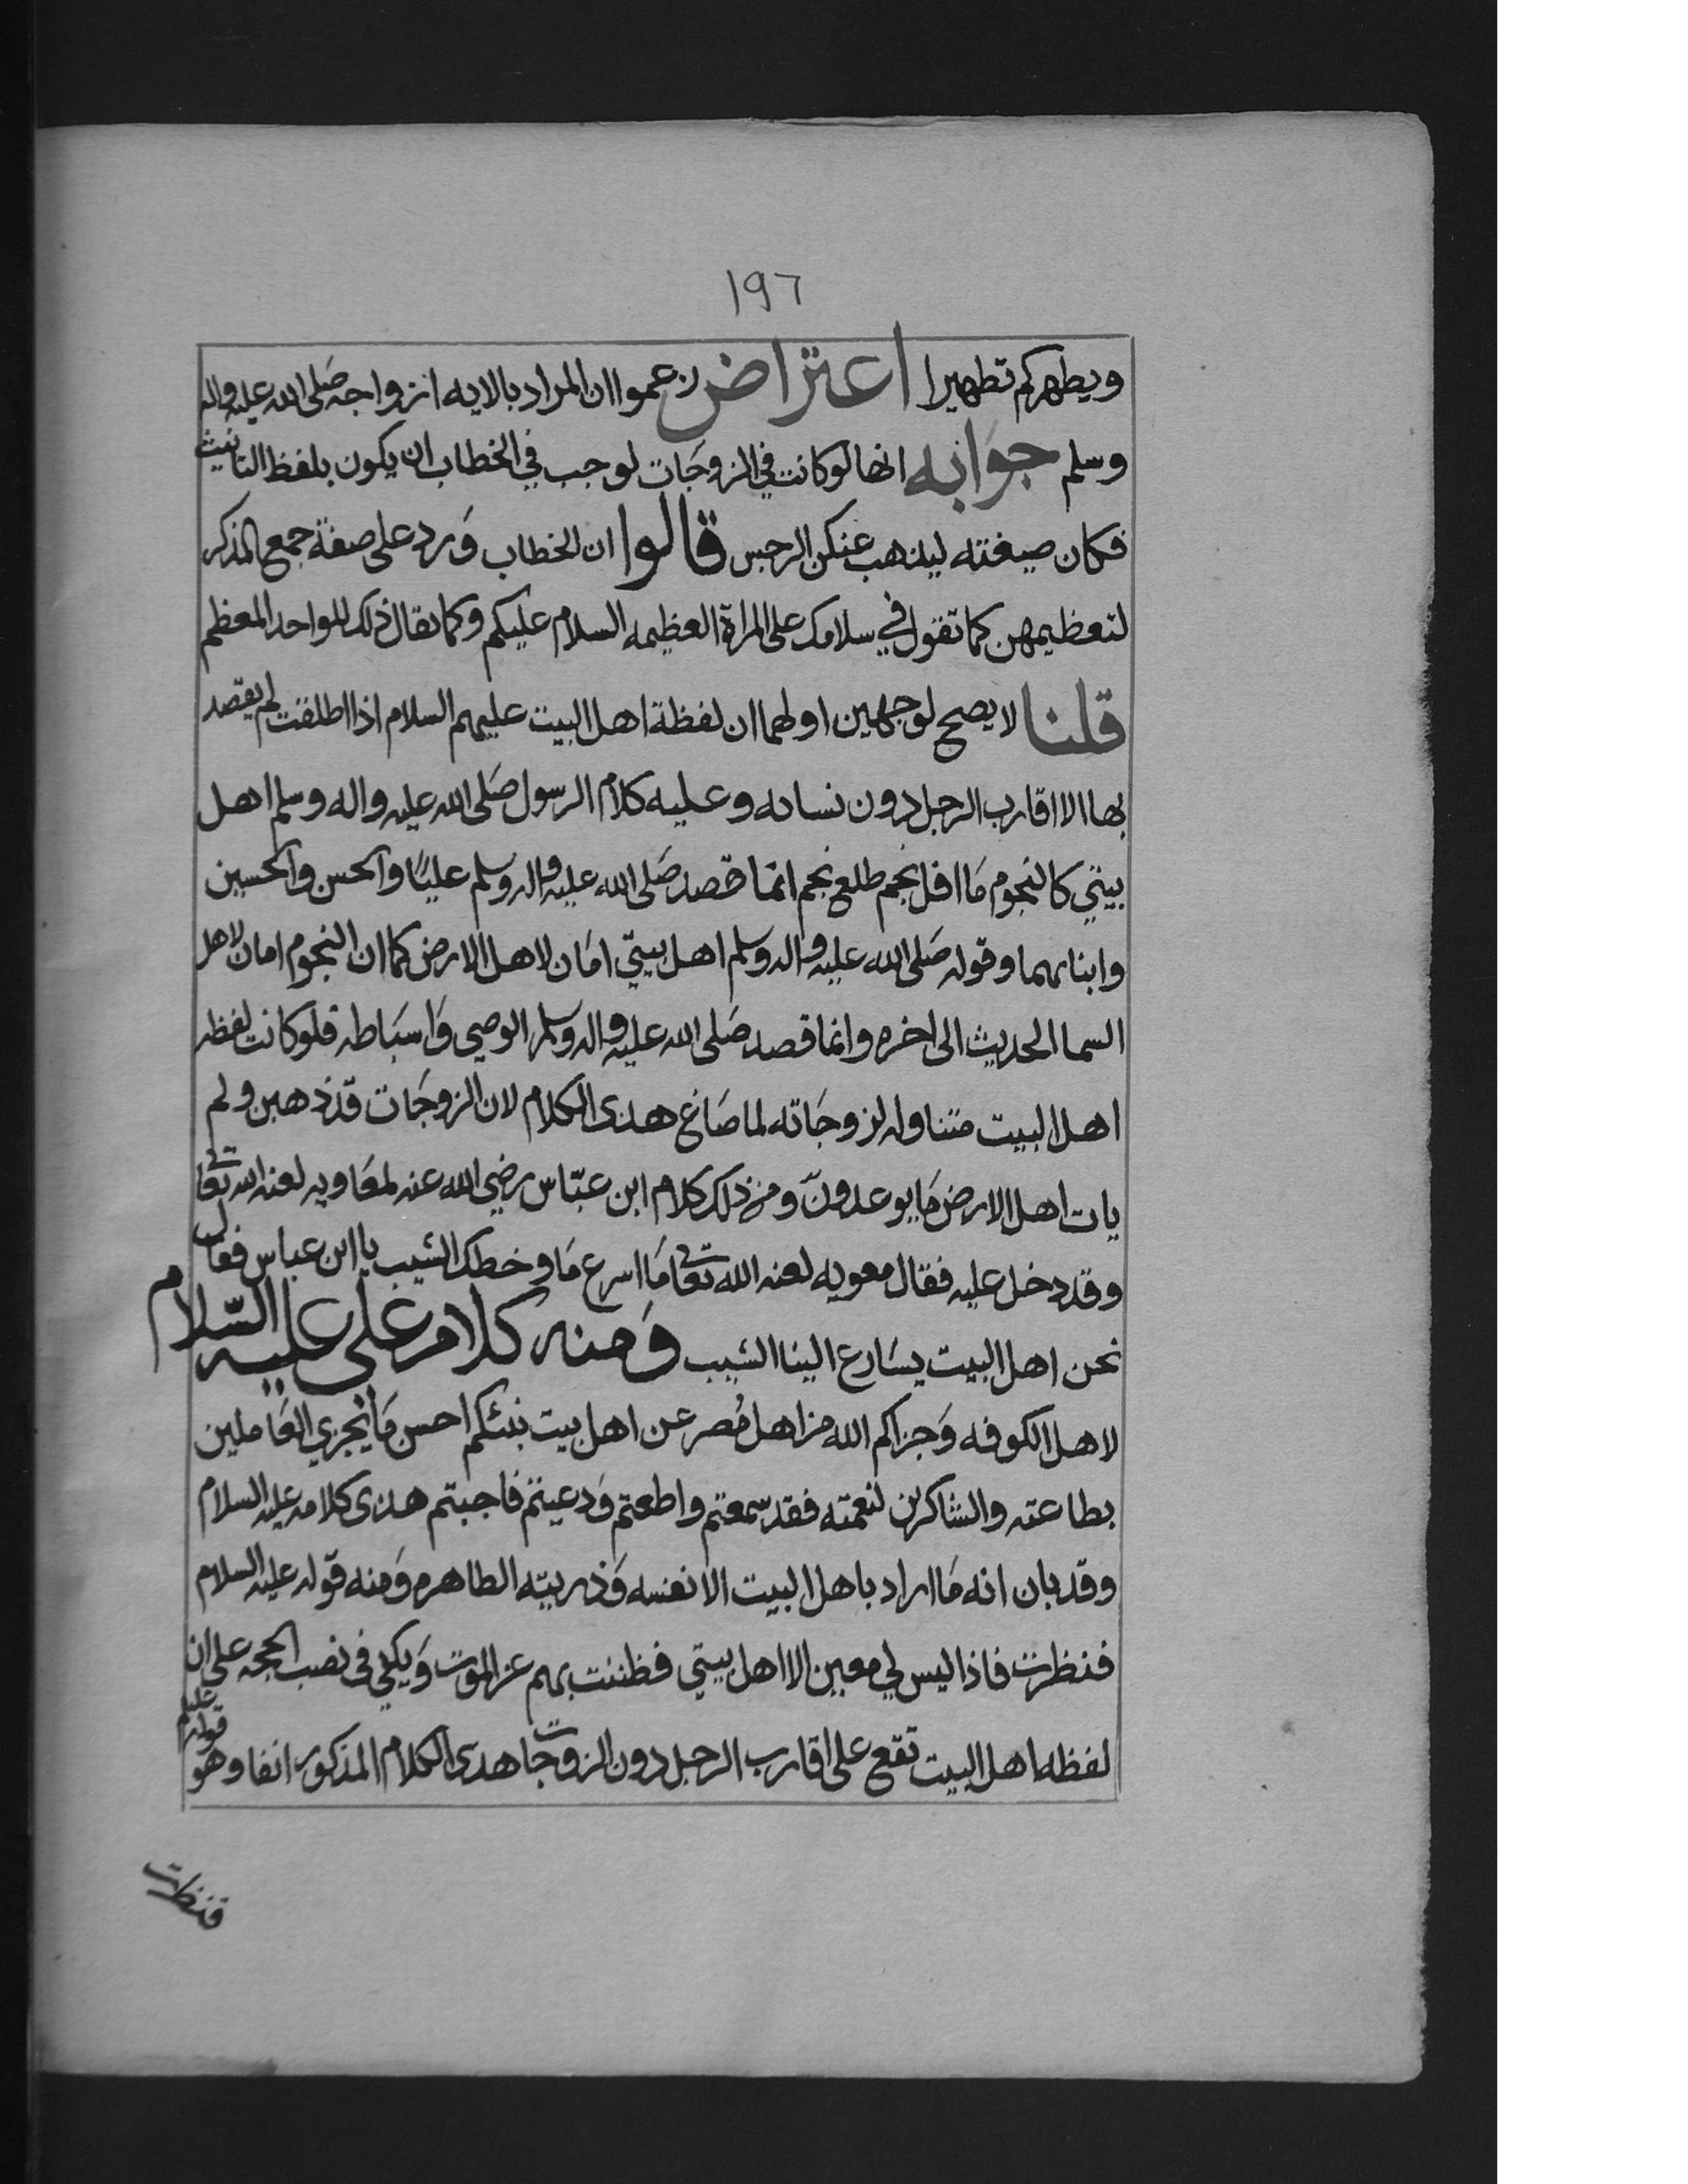 ١٩٦
ويطهركم تطهيرا اعتراض زعموا ان المراد بالايه ازواجه صَلى الله عليه واله
وسلم جوَابه انها لو كانت في الزوجَات لوجب في الخطاب ان يكون بلفظ التانيث
فكان صيغته ليذهب عنكن الرجس قالوا ان الخطاب وَرد على صفة جمع المذكر
لتعظيمهن كما تقول في سلامك على المراة العظيمه السلام عليكم وكما يقال ذلك للواحد المعظم
قلنا لا يصح لوجهين اولهما ان لفظة اهل البيت عليهم السلام اذا اطلقت لم يقصد
بها الا اقارب الرجل دون نسائه وعليه كلام الرسول صَلى الله عليه واله وسلم اهل
بيتي كالنجوم مَا افل نجم طلع نجم انما قصد صَلى الله عليه واله وسلم عليًا والحسن والحسين
وابنائهما وقوله صَلى الله عليه واله وسلم اهل بيتي امَان لاهل الارض كما ان النجوم امان لاهل
السما الحديث الى اخره وانما قصد صَلى الله عليه واله وسلم الوصي وَاسبَاطه فلو كانت لفظه
اهل البيت متناوله لزوجَاته لما صَاغ هذى الكلام لان الزوجَات قد ذهبن ولم
يات اهل الارض مَا يوعدونّ ومن ذلك كلام ابن عبّاس رضي الله عنه لمعَاويه لعنه الله تعَالى
وقد دخل عليه فقال معويه لعنه الله تعَالى مَا اسرع مَا وخطك الشيب يا ابن عباس فقال
نحن اهل البيت يسَارع الينا الشيب وَمنه كلام علي عليه السّلام
لاهل الكوفه وَجزاكم الله من اهل مُصر عن اهل بيت نبئكم احسن مَا يجزي العَاملين
بطاعته والشاكرين لنعمته فقد سمعتم واطعتم وَدعيتم فاجبتم هذى كلامه عليه السلام
وقد بان انه مَا اراد باهل البيت الا نفسه وَذريته الطاهره وَمنه قوله عليه السلام
فنظرت فاذا ليس لي معين الا اهل بيتي فظننت بهم عن الموت وَيكفي في نصب الحجه على ان
لفظه اهل البيت تقع على اقارب الرجل دون الزوجات هذى الكلام المذكور انفا وهو
قوله عليلم
فنظرت